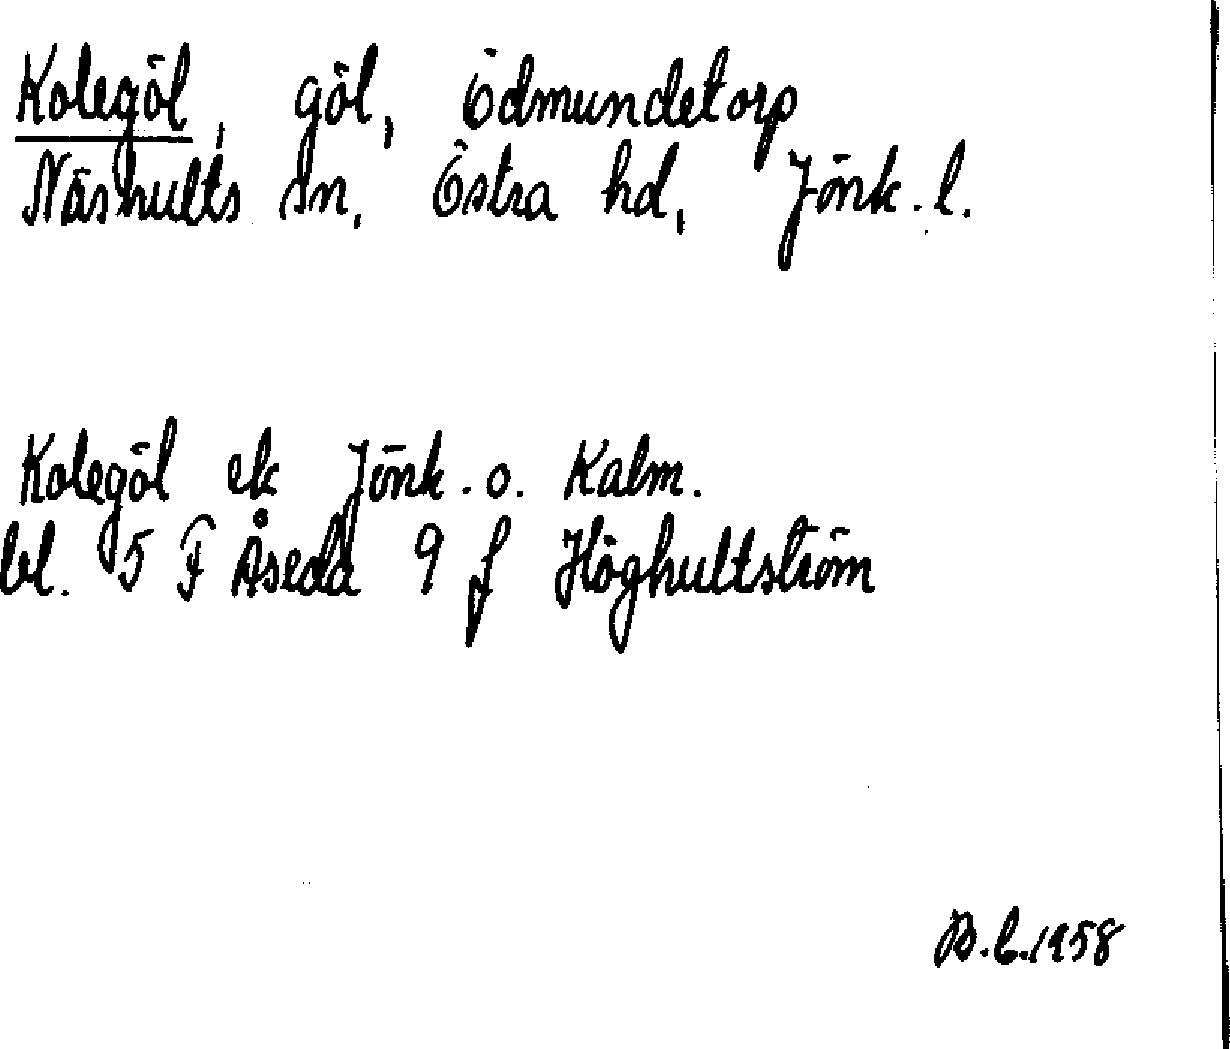 Kolegöl, göl, Ödmundetorp
Näshults sn, Östra hd, Jönk. l.
Kolegöl ek Jönk. o. Kalm.
bl. 5 F Åseda 9 f Höghultström
B.C. 1958